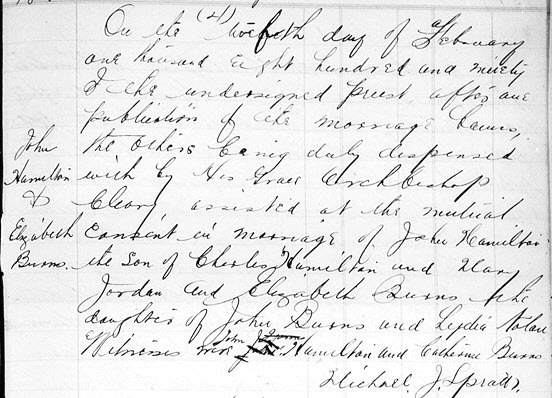 (4)
On the twelfth day of February
one thousand eight hundred and ninety
I the undersigned priest, after one
publication of the marriage banns,
the others being duly dispensed
with by His Grace Archbishop
Cleary assisted at the mutual
consent in marriage of John Hamilton
the son of Charles Hamilton and Mary
Jordan and Elizabeth Burns the
daughter of John Burns and Lydia Nolan
Witnesses were John Hamilton and Catherine Burns
Michael J. Spratt.
John
Hamilton
&
Elizabeth
Burns.